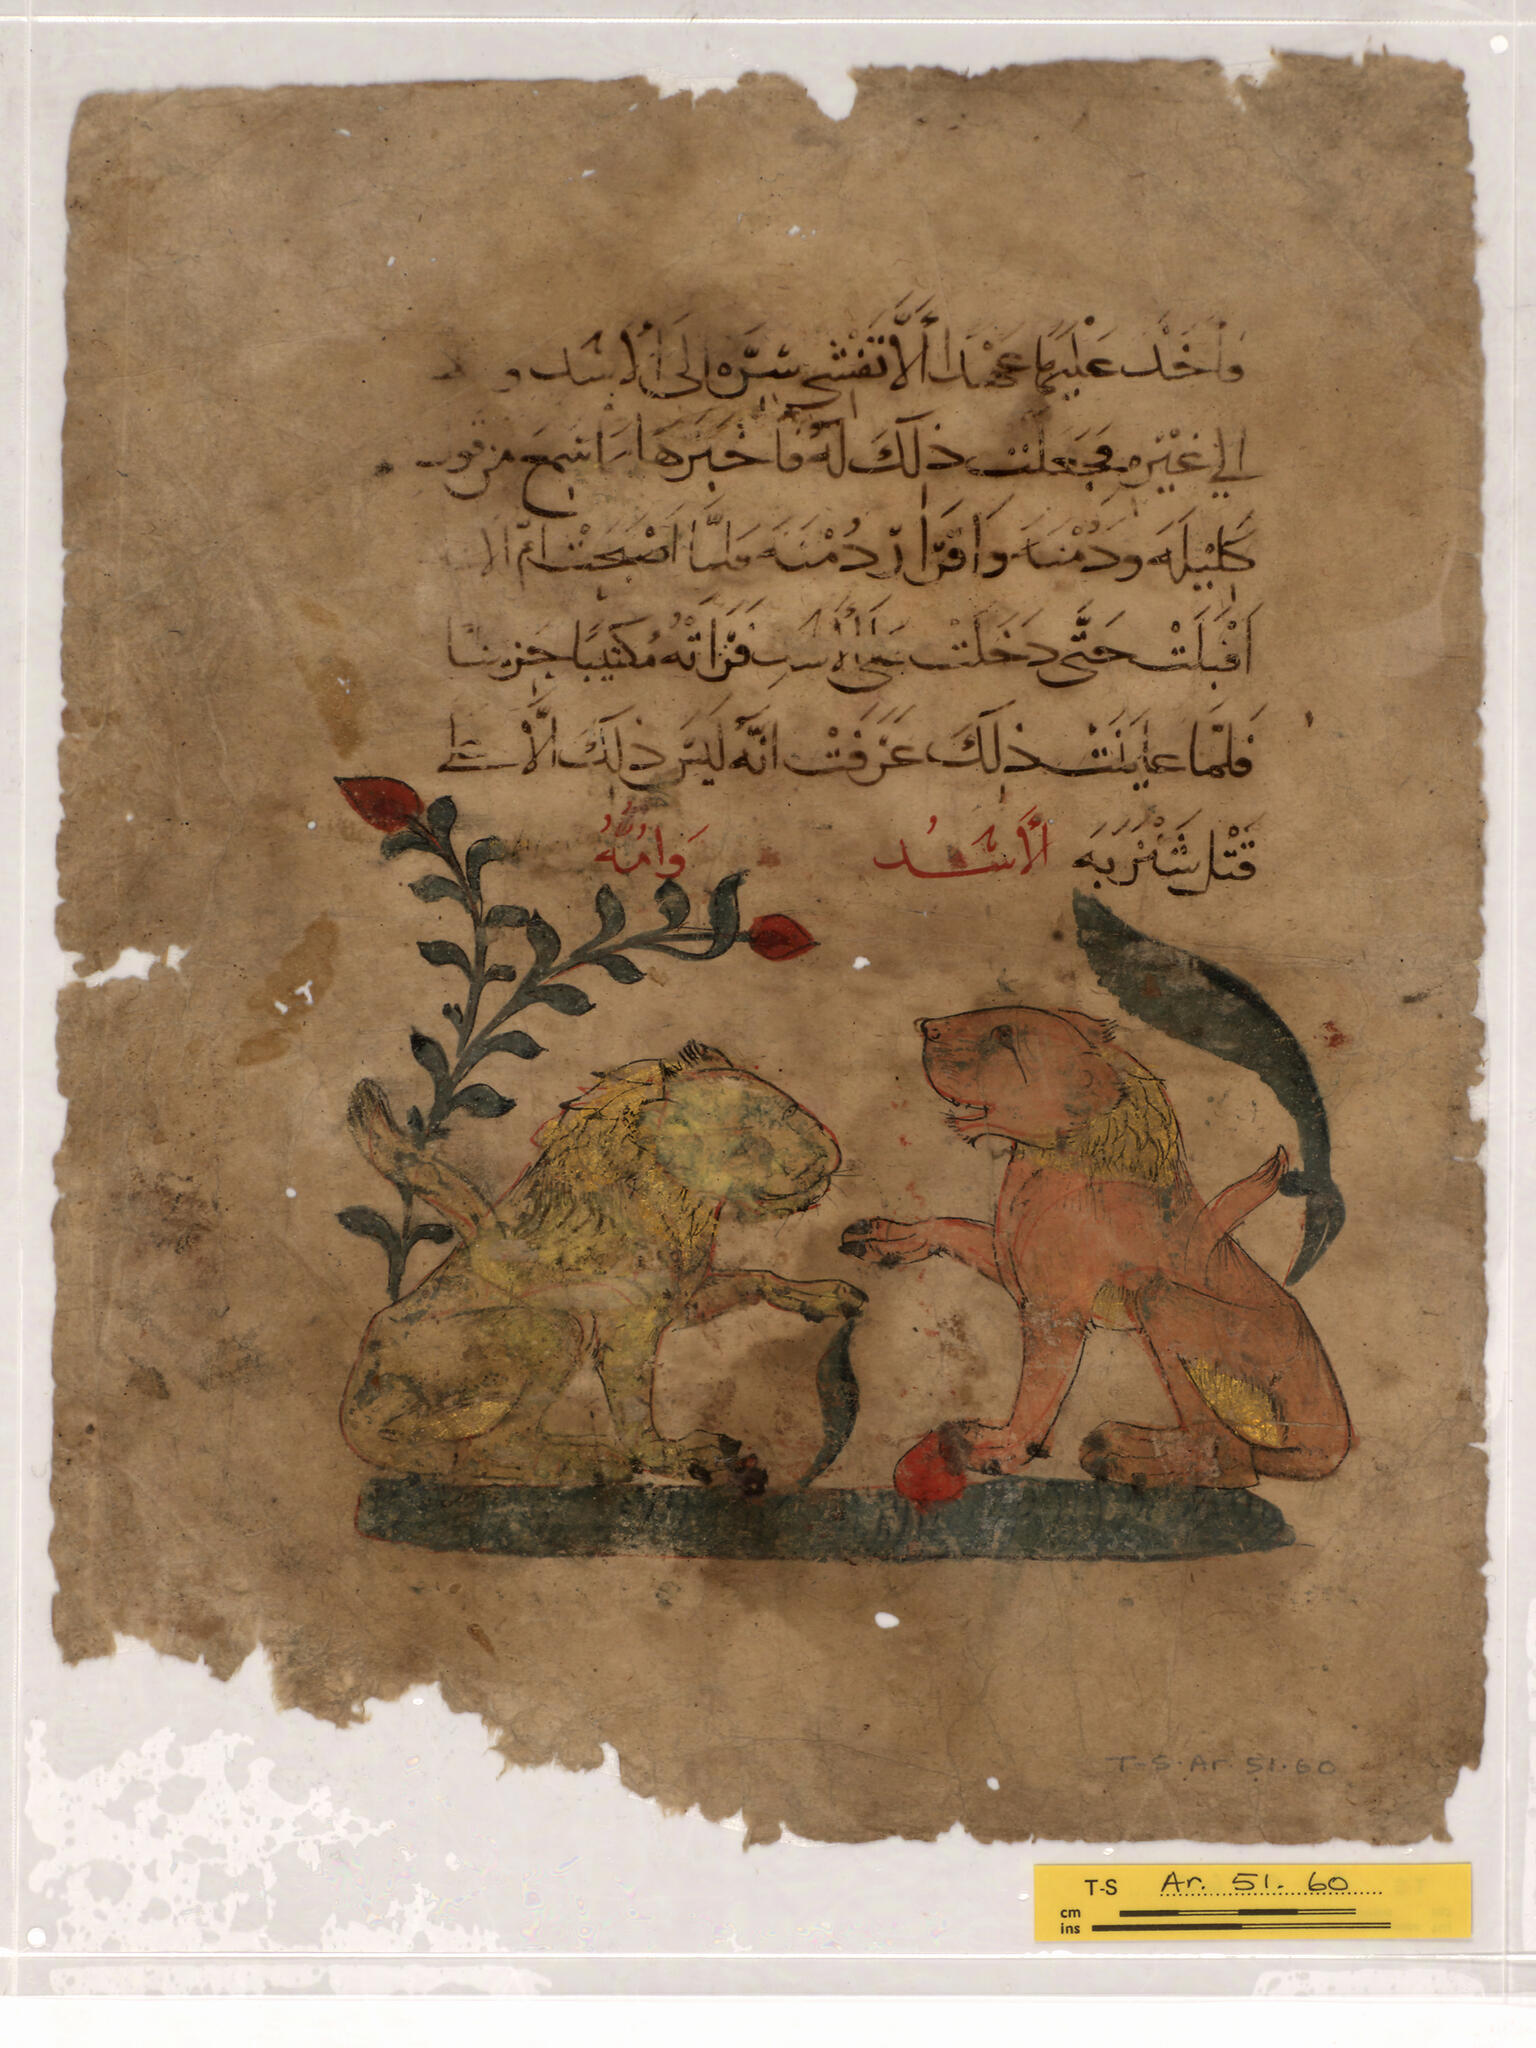 وَاَخَذَ عَلَيْهَا عَهْدًا أَلَّا تَفْشِي سِرَّه اِلَى اُلاَسَد و
الي غَيْرِه فَجَعَلَتْ ذلِكَ لَهُ فَاَخْبَرَهَا بمَا سَمِعَ من قول
كَلِيْلَه ودُمْنَه وَاِقْرَار دُمْنَه فلمَّا اَصْبَحَتْ اُمّ الاسد
اَقْبَلَتْ حَتَّى دَخَلَتْ عَلَى اُلأَسَدِ فَرَاَتْهُ مُكتيبًا حَزِينًا
فَلمَّا عايَنَتْ ذلِكَ عَرَفَتْ انَّهُ لَيْسَ ذلِكَ اِلَّا على
قَتْل شَنْزَبَه اُلأَسَدُ وَامُّهُ
T-S. Ar. 51.60
T-S Ar. 51. 60
cm
ins